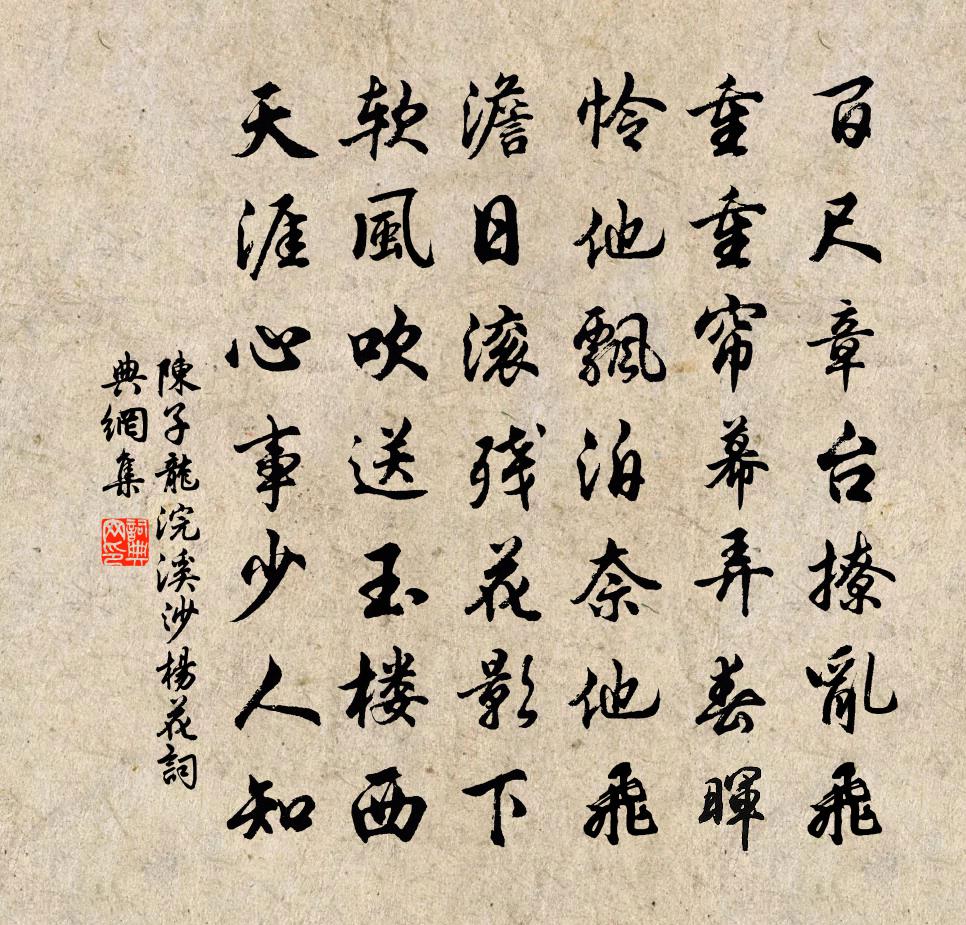 百尺章台撩亂飛
重重帘幕弄春暉
怜他飄泊奈他飛
澹日滚残花影下
软風吹送玉楼西
天涯心事少人知
陳子龍浣溪沙楊花詞
典網集
詞典网印